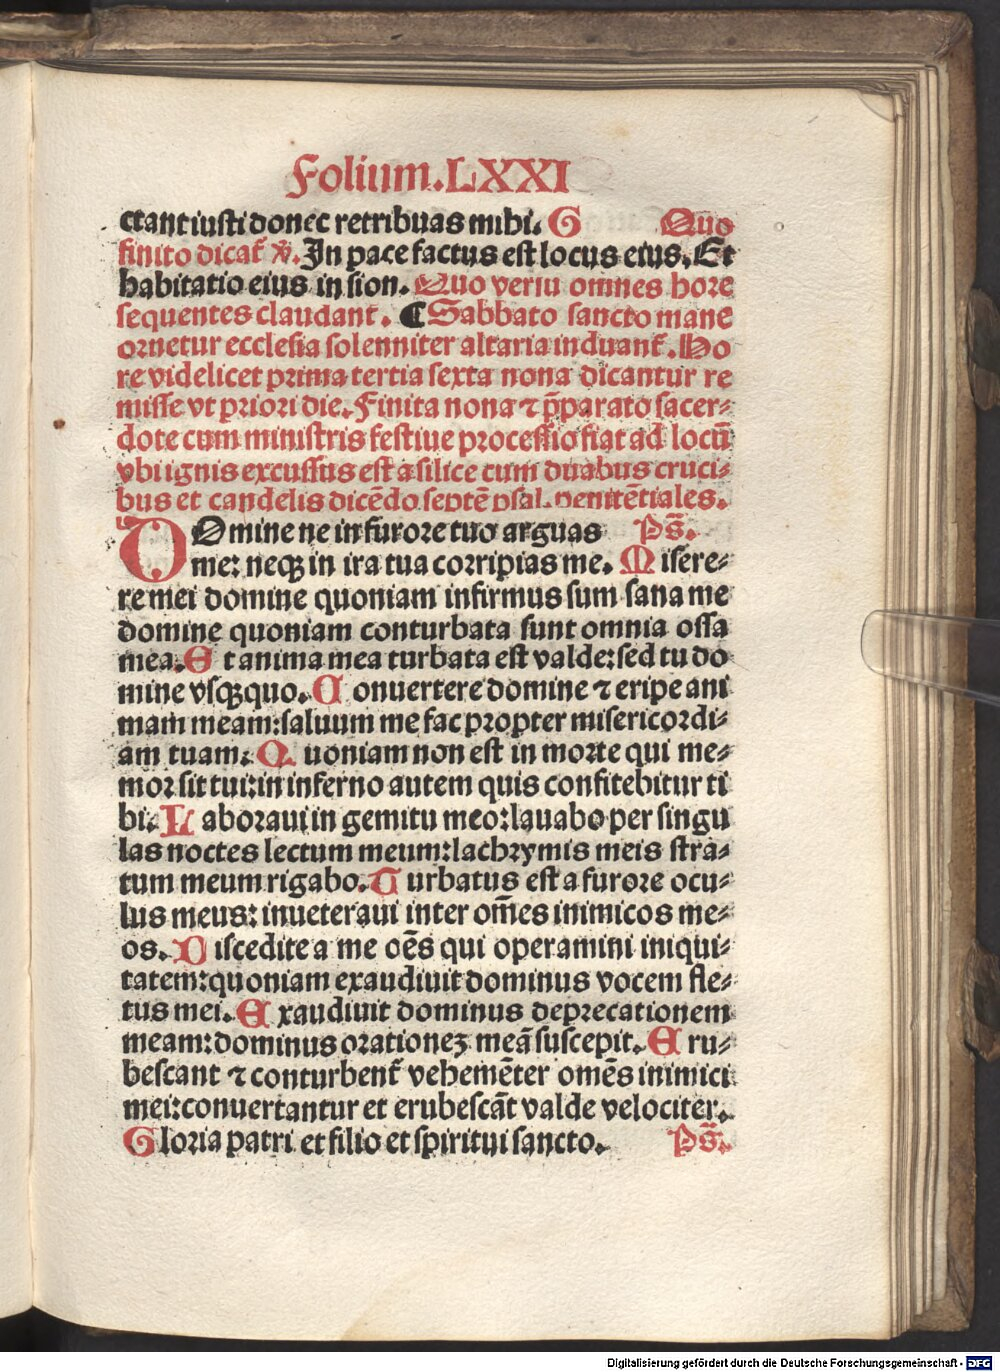 Folium.LXXI
ctant iusti donec retribuas mihi. G Quo
finito dicat̄ ℣. In pace factus est locus eius. Et
habitatio eius in sion. Quo veriu omnes hore
sequentes claudant. ¶ Sabbato sancto mane
ornetur ecclesia solenniter altaria induant̄. Ho
re videlicet prima tertia sexta nona dicantur re
misse vt priori die. Finita nona ⁊ p̄parato sacer⸗
dote cum ministris festiue processio fiat ad locū
vbi ignis excussus est a silice cum duabus cruci⸗
bus et candelis dicēdo septē psal. penitētiales.
DOmine ne in furore tuo arguas Ps̄.
me: neqꝫ in ira tua corripias me. Misere⸗
re mei domine quoniam infirmus sum sana me
domine quoniam conturbata sunt omnia ossa
mea. Et anima mea turbata est valde: sed tu do
mine vsqꝫquo. Conuertere domine ⁊ eripe ani
mam meam: saluum me fac propter misericordi⸗
am tuam: Quoniam non est in morte qui me⸗
mor sit tui: in inferno autem quis confitebitur ti
bi. Laboraui in gemitu meo: lauabo per singu
las noctes lectum meum: lachrymis meis stra⸗
tum meum rigabo. Turbatus est a furore ocu⸗
lus meus: inueteraui inter om̄es inimicos me⸗
os. Discedite a me oēs qui operamini iniqui⸗
tatem: quoniam exaudiuit dominus vocem fle⸗
tus mei. Exaudiuit dominus deprecationem
meam: dominus orationeꝫ meā suscepit. Eru⸗
bescant ⁊ conturbent̄ vehemēter omēs inimici
mei: conuertantur et erubescāt valde velociter.
Gloria patri et filio et spiritui sancto. Ps̄.
Digitalisierung gefördert durch die Deutsche Forschungsgemeinschaft - DFG